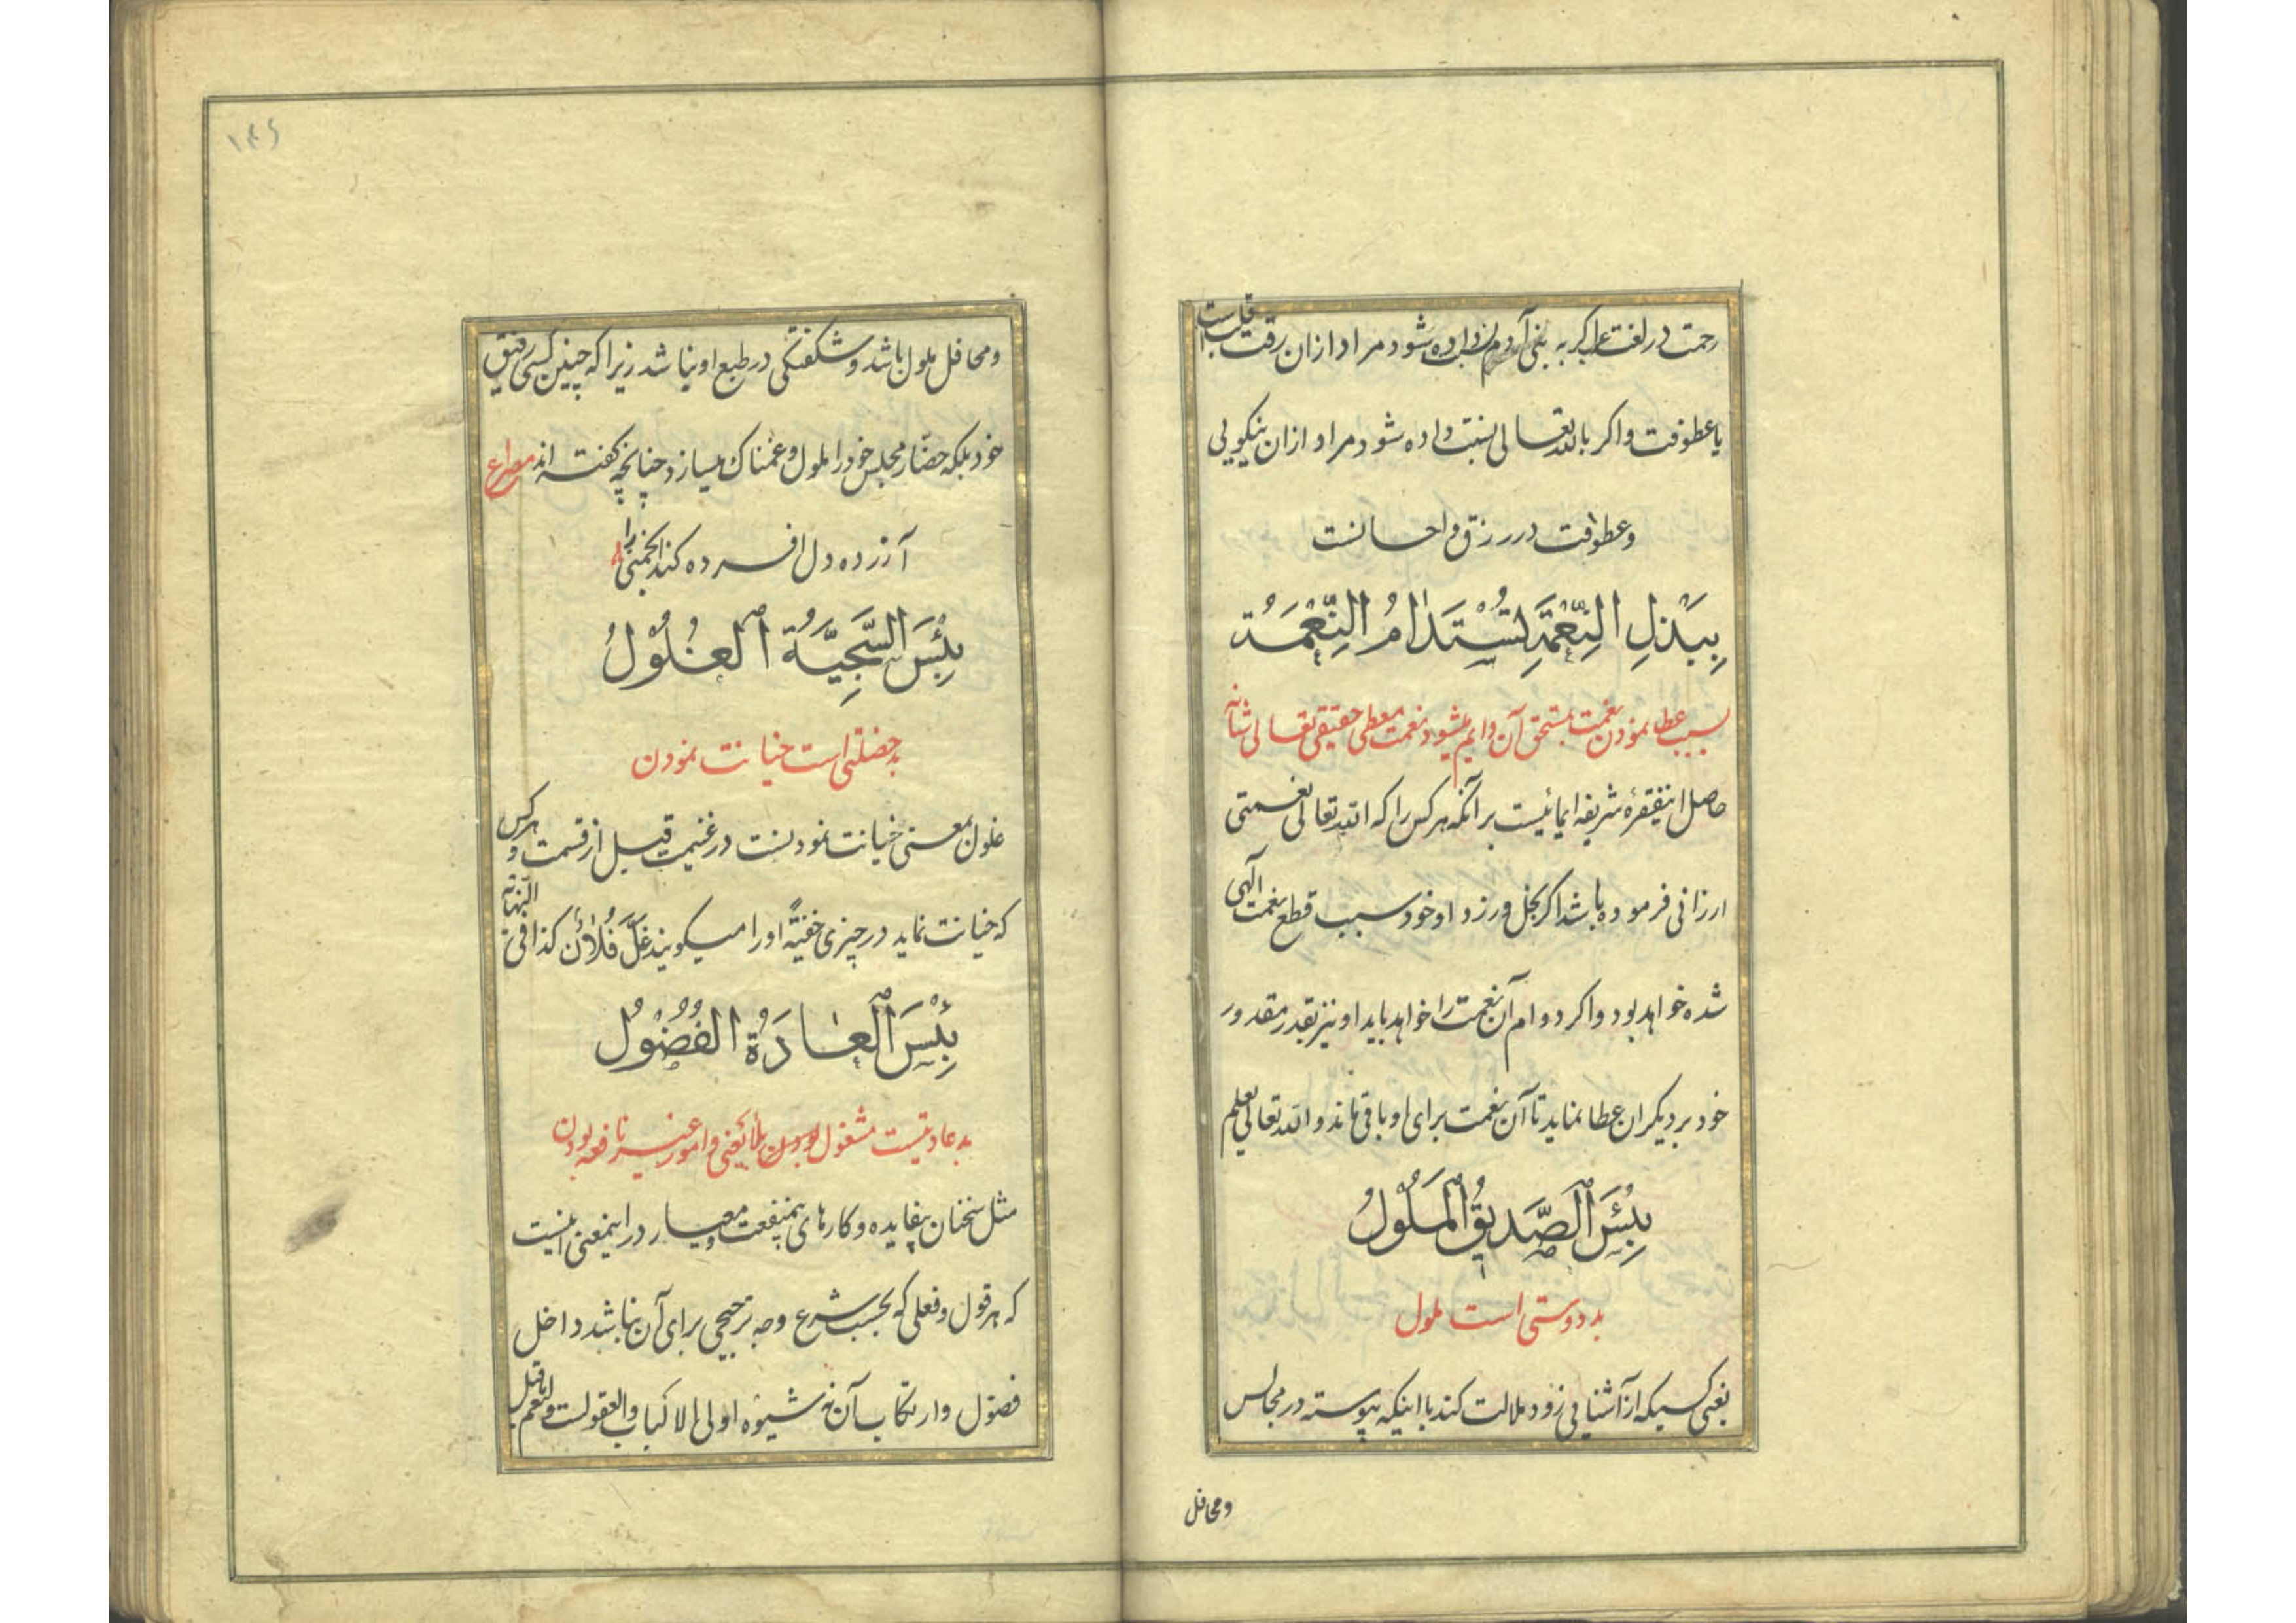 رحمت در لغت عرب اکر به بنی آدم نسبت داده شود مراد ازان رقت قلبست
یا عطوفت واکر بالله تعالی نسبت داده شود مراد ازان نیکویی
و عطوفت در رزق و احسانست
بِبَذْلِ النِّعْمَةِ تُسْتَدَامُ النِّعْمَةُ
بسبب عطا نمودن نعمت بمستحق آن دایم میشود نعمت معطی حقیقی تعالی شانه
حاصل اینفقرهٔ شریفه ایمائیست بر آنکه هر کس را که الله تعالی نعمتی
ارزانی فرموده باشد اکر بخل ورزد او خود سبب قطع نعمت الٓهی
شده خواهد بود و اکر دوام آن نعمت را خواهد باید او نیز بقدر مقدور
خود بر دیکران عطا نماید تا آن نعمت برای او باقی ماند و الله تعالی یعلم
بِئْسَ الصَّدِیقُ الْمَلُولُ
بد دوستی است ملول
یعنی کسیکه از آشنایی زود ملالت کند با اینکه پیوسته در مجالس
ومحافل
ومحافل ملول باشد و شکفتکی در طبع او نباشد زیرا که چنین کسی رفیق
خود بلکه حضار مجلس خود را ملول و غمناک میسازد چنانچه کفته اند مصراع
آزرده دل افسرده کند انجمنی را
بِئْسَ السَّجِیَّةُ الْغُلُولُ
بد خصلتی است خیانت نمودن
غلول بمعنی خیانت نمودنست در غنیمت قبل از قسمت و هر کس
که خیانت نماید در چیزی خفیةً او را میکویند غَلَّ فُلَانٌ کذا فی النهایه
بِئْسَ الْعَادَةُ الْفُضُولُ
بد عادتیست مشغول بودن بلا یعنی و امور غیر نافعه بودن
مثل سخنان بیفایده و کارهای بیمنفعت و معیار در اینمعنی اینست
که هر قول و فعلی که بحسب شرع وجه ترجیحی برای آن نباشد داخل
فضول و ارتکاب آن نه شیوه اولی الالباب و العقولست و لنعم ما قیل